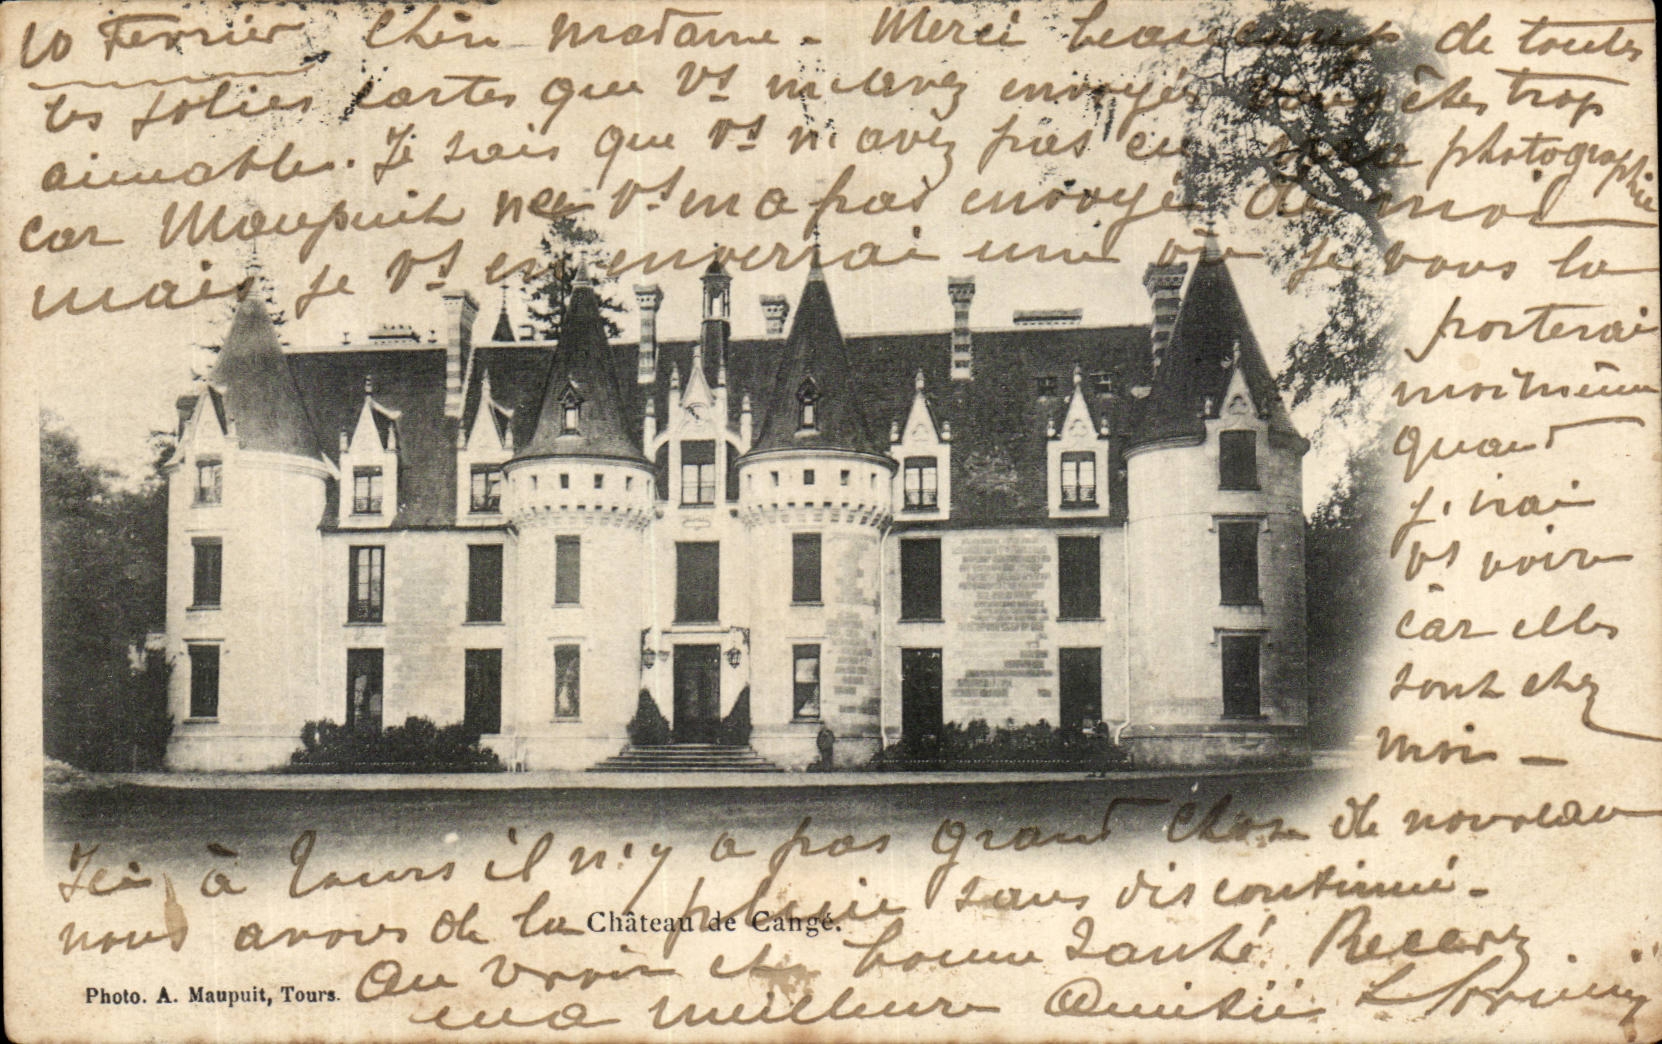 10 Février Chère Madame - Merci beaucoup de toutes
les jolies cartes que vs m'avez envoyés vous êtes trop
aimable. Je sais que vs n'avez pas eu ma photographie
car Maupuit ne vs en a pas envoyé de moi
mais je vs en enverrai une ou je vous la
porterai
moi même
quand
j'irai
vs voir
car elles
sont chez
moi -
Ici à Tours il n'y a pas grand chose de nouveau
nous avons de la pluie sans discontinué -
Château de Cangé.
Au revoir et bonne santé. Recevez
ma meilleure Amitié
Photo. A. Maupuit, Tours.